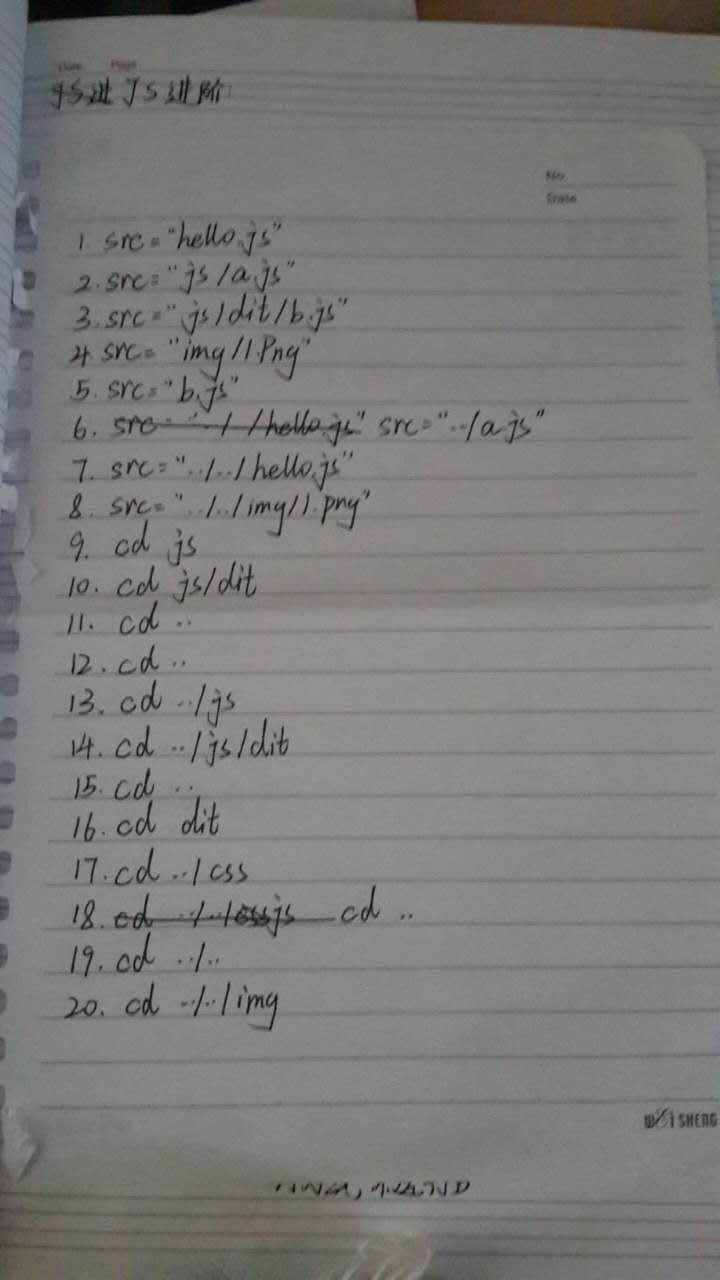 Date Page
JS进 JS进阶:
No
Date
1. src="hello.js"
2. src="js/a.js"
3. src="js/dit/b.js"
4. src="img/1.Png"
5. src="b.js"
6. src="../../hello.js" src="../a.js"
7. src="../../hello.js"
8. src="../../img/1.png"
9. cd js
10. cd js/dit
11. cd ..
12. cd ..
13. cd ../js
14. cd ../js/dit
15. cd ..
16. cd dit
17. cd ../css
18. cd ../../cssjs cd ..
19. cd ../..
20. cd ../../img
SHENG